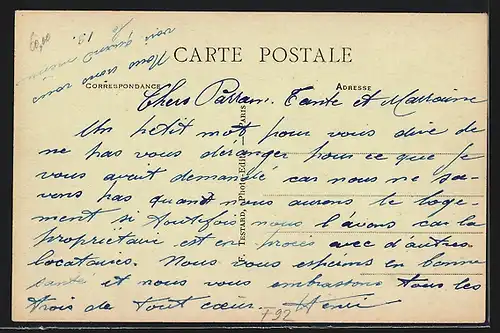 60,00
Nous irons vous
voir quand même
le 15.
CARTE POSTALE
CORRESPONDANCE
ADRESSE
Chers Parrain, Tante et Marraine
Un petit mot pour vous dire de
ne pas vous déranger pour ce que je
vous avait demandé car nous ne sa-
vons pas quand nous aurons le loge-
ment si toutefois nous l'avons car la
propriétaire est en procès avec d'autres
locataires. Nous vous espérons en bonne
santé et nous vous embrassons tous les
trois de tout cœur. Henri
F. TESTARD, Photo-Edit. — PARIS
F92